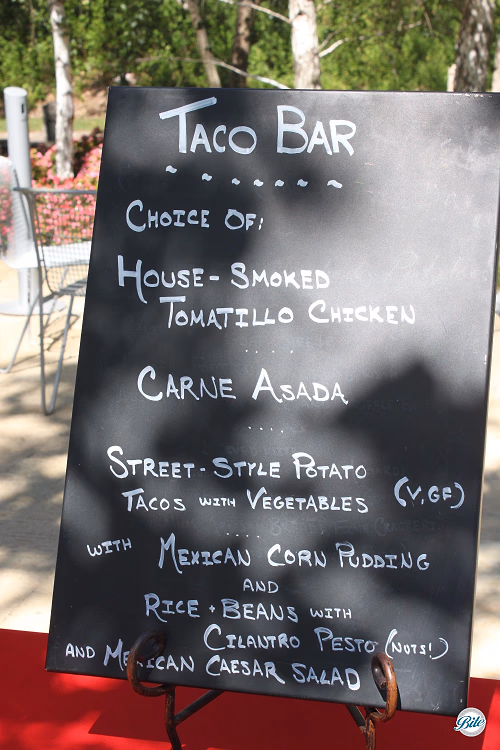 TACO BAR
CHOICE OF:
HOUSE-SMOKED
TOMATILLO CHICKEN
CARNE ASADA
STREET-STYLE POTATO
TACOS WITH VEGETABLES (V, GF)
WITH MEXICAN CORN PUDDING
AND
RICE + BEANS WITH
CILANTRO PESTO (NUTS!)
AND MEXICAN CAESAR SALAD
Bite